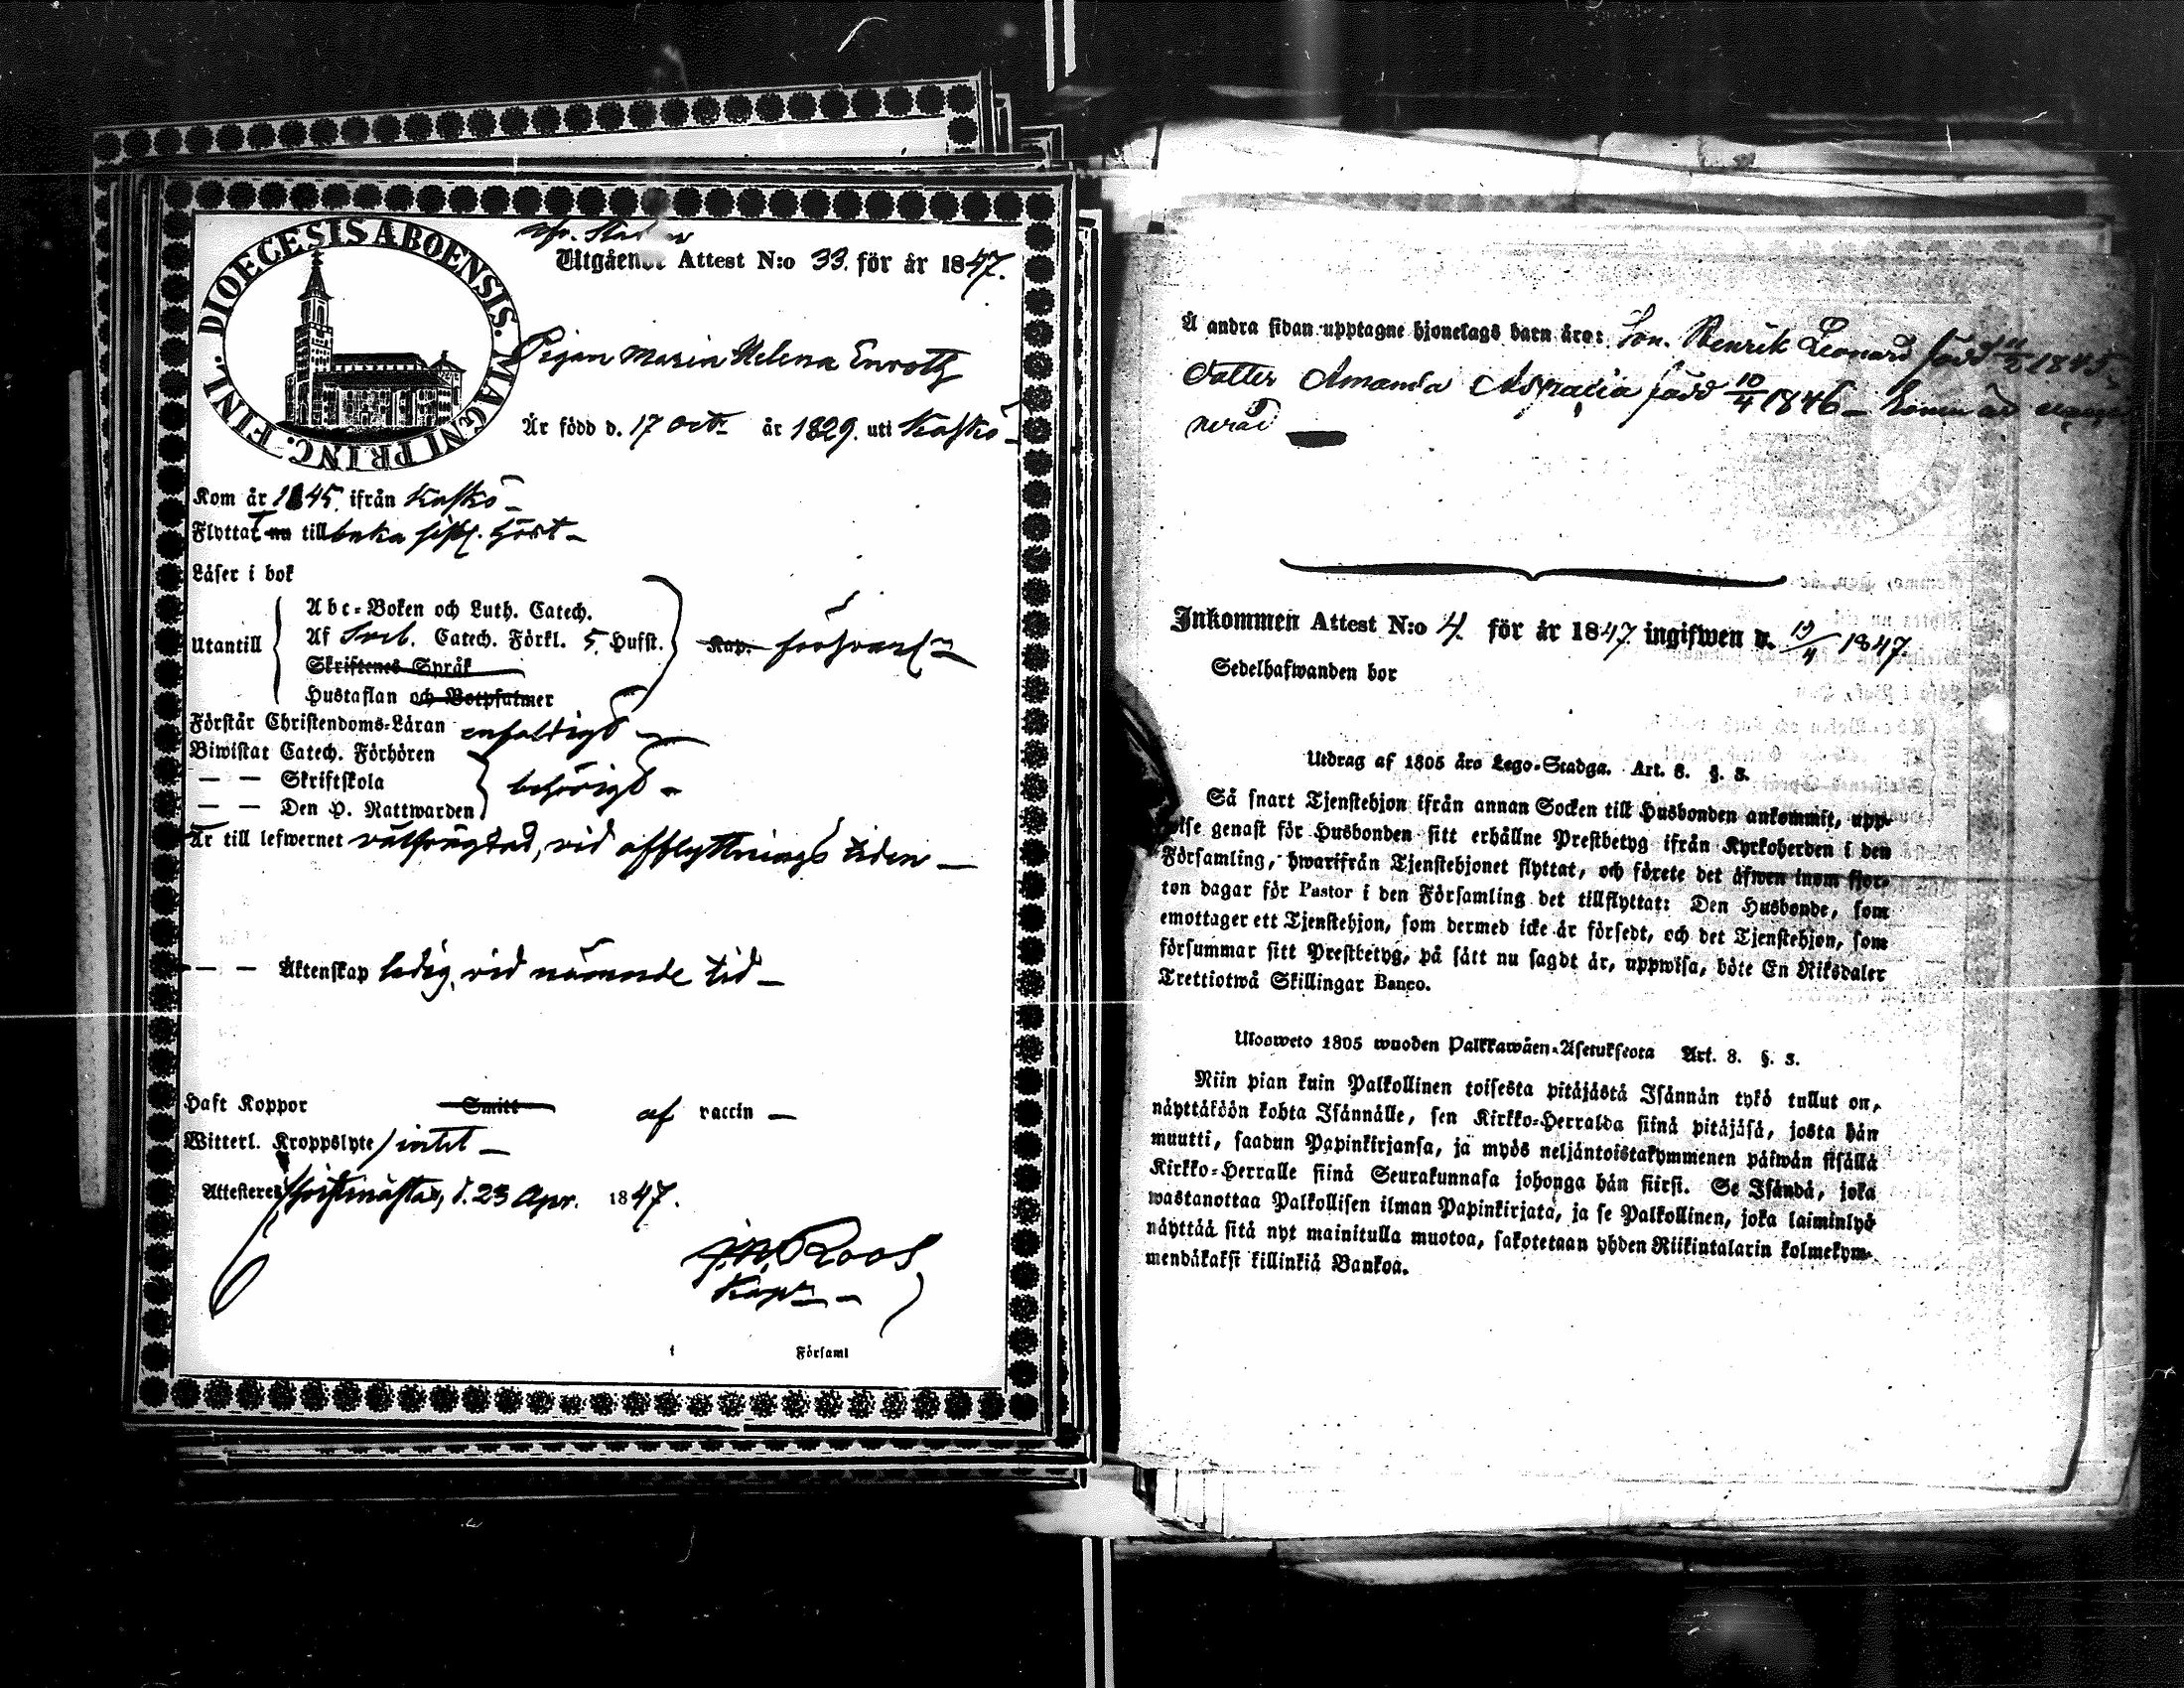 DIOECESIS ABOENSIS. MAGNI PRINC. FINL.
Utgående Attest N:o 33. för år 1847.
Pigan Maria Helena Enroth
Är född d. 17 Octr år 1829. uti Kaskö
Kom år 1845. ifrån Kaskö
Flyttat nu tillbaka sistl. höst
Läser i bok
Utantill
Abc-Boken och Luth. Catech.
Af Sveb. Catech. Förkl. 5 Hufst.
Skriftenes Språk
Hustaflan och Botpsalmer
Kap. försvarl.
Förstår Christendoms-Läran enfaldigt
Biwistat Catech. Förhören
— — Skriftskola
— — Den H. Nattwarden
behörigt
Är till lefwernet välfrägdad, vid afflyttnings tiden
— — Äktenskap ledig, vid nämnde tid
Haft Koppor Smitt af vaccin
Witterl. Kroppslyte intet
Attesteres Christinæstad, d. 23 Apr. 1847.
J. W. Roos
Kapn
Församl
Å andra sidan upptagne hjonelags barn äro: Son. Henrik Leonard född 11/2 1845,
dotter Amanda född 10/4 1846
Inkommen Attest N:o 4. för år 1847 ingifwen d. 19/4 1847.
Sedelhafwanden bor
Utdrag af 1805 års Lego-Stadga. Art. 8. §. 3.
Så snart Tjenstehjon ifrån annan Socken till Husbonden ankommit, upp-
wise genast för Husbonden sitt erhållne Prestbetyg ifrån Kyrkoherden i den
Församling, hwarifrån Tjenstehjonet flyttat, och förete det äfwen inom fjor-
ton dagar för Pastor i den Församling det tillflyttat: Den Husbonde, som
emottager ett Tjenstehjon, som dermed icke är försedt, och det Tjenstehjon, som
försummar sitt Prestbetyg, på sätt nu sagdt är, uppwisa, böte En Riksdaler
Trettiotwå Skillingar Banco.
Ulosweto 1805 wuoden Palkkawäen-Asetuksesta Art. 8. §. 3.
Niin pian kuin Palkollinen toisesta pitäjästä Isännän tykö tullut on,
näyttäköön kohta Isännälle, sen Kirkko-Herralda siinä pitäjäsä, josta hän
muutti, saadun Papinkirjansa, ja myös neljäntoistakymmenen päiwän sisällä
Kirkko-Herralle siinä Seurakunnasa johonga hän siirsi. Se Isändä, joka
wastanottaa Palkollisen ilman Papinkirjata, ja se Palkollinen, joka laiminlyö
näyttää sitä nyt mainitulla muotoa, sakotetaan yhden Riikintalarin kolmekym-
mendäkaksi killinkiä Bankoa.